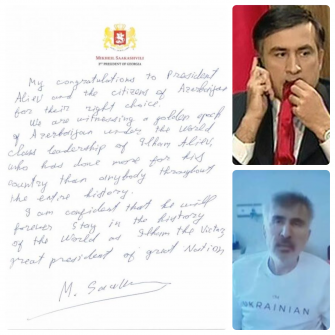 MIKHEIL SAAKASHVILI
3RD PRESIDENT OF GEORGIA
My congratulations to President
Aliev and the citizens of Azerbaijan
for their right choice.
We are witnessing a golden epoch
of Azerbaijan under the world
class leadership of Ilham Aliev,
who has done more for his
country than anybody throughout
the entire history.
I am confident that he will
forever stay in the history
of the World as Ilham the Victor
great president of great Nation,
M. Saak
THE
RAINIAN